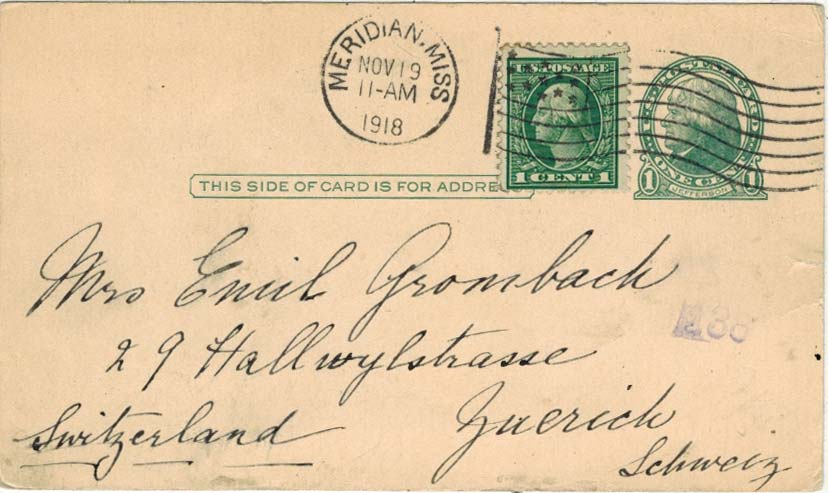 MERIDIAN, MISS
NOV 19
11-AM
1918
U.S. POSTAGE
1 CENT 1
U.S. POSTAGE
1 ONE CENT 1
JEFFERSON
THIS SIDE OF CARD IS FOR ADDRE
Mrs Emil Grombach
29 Hallwylstrasse
Switzerland Zuerich
Schweiz